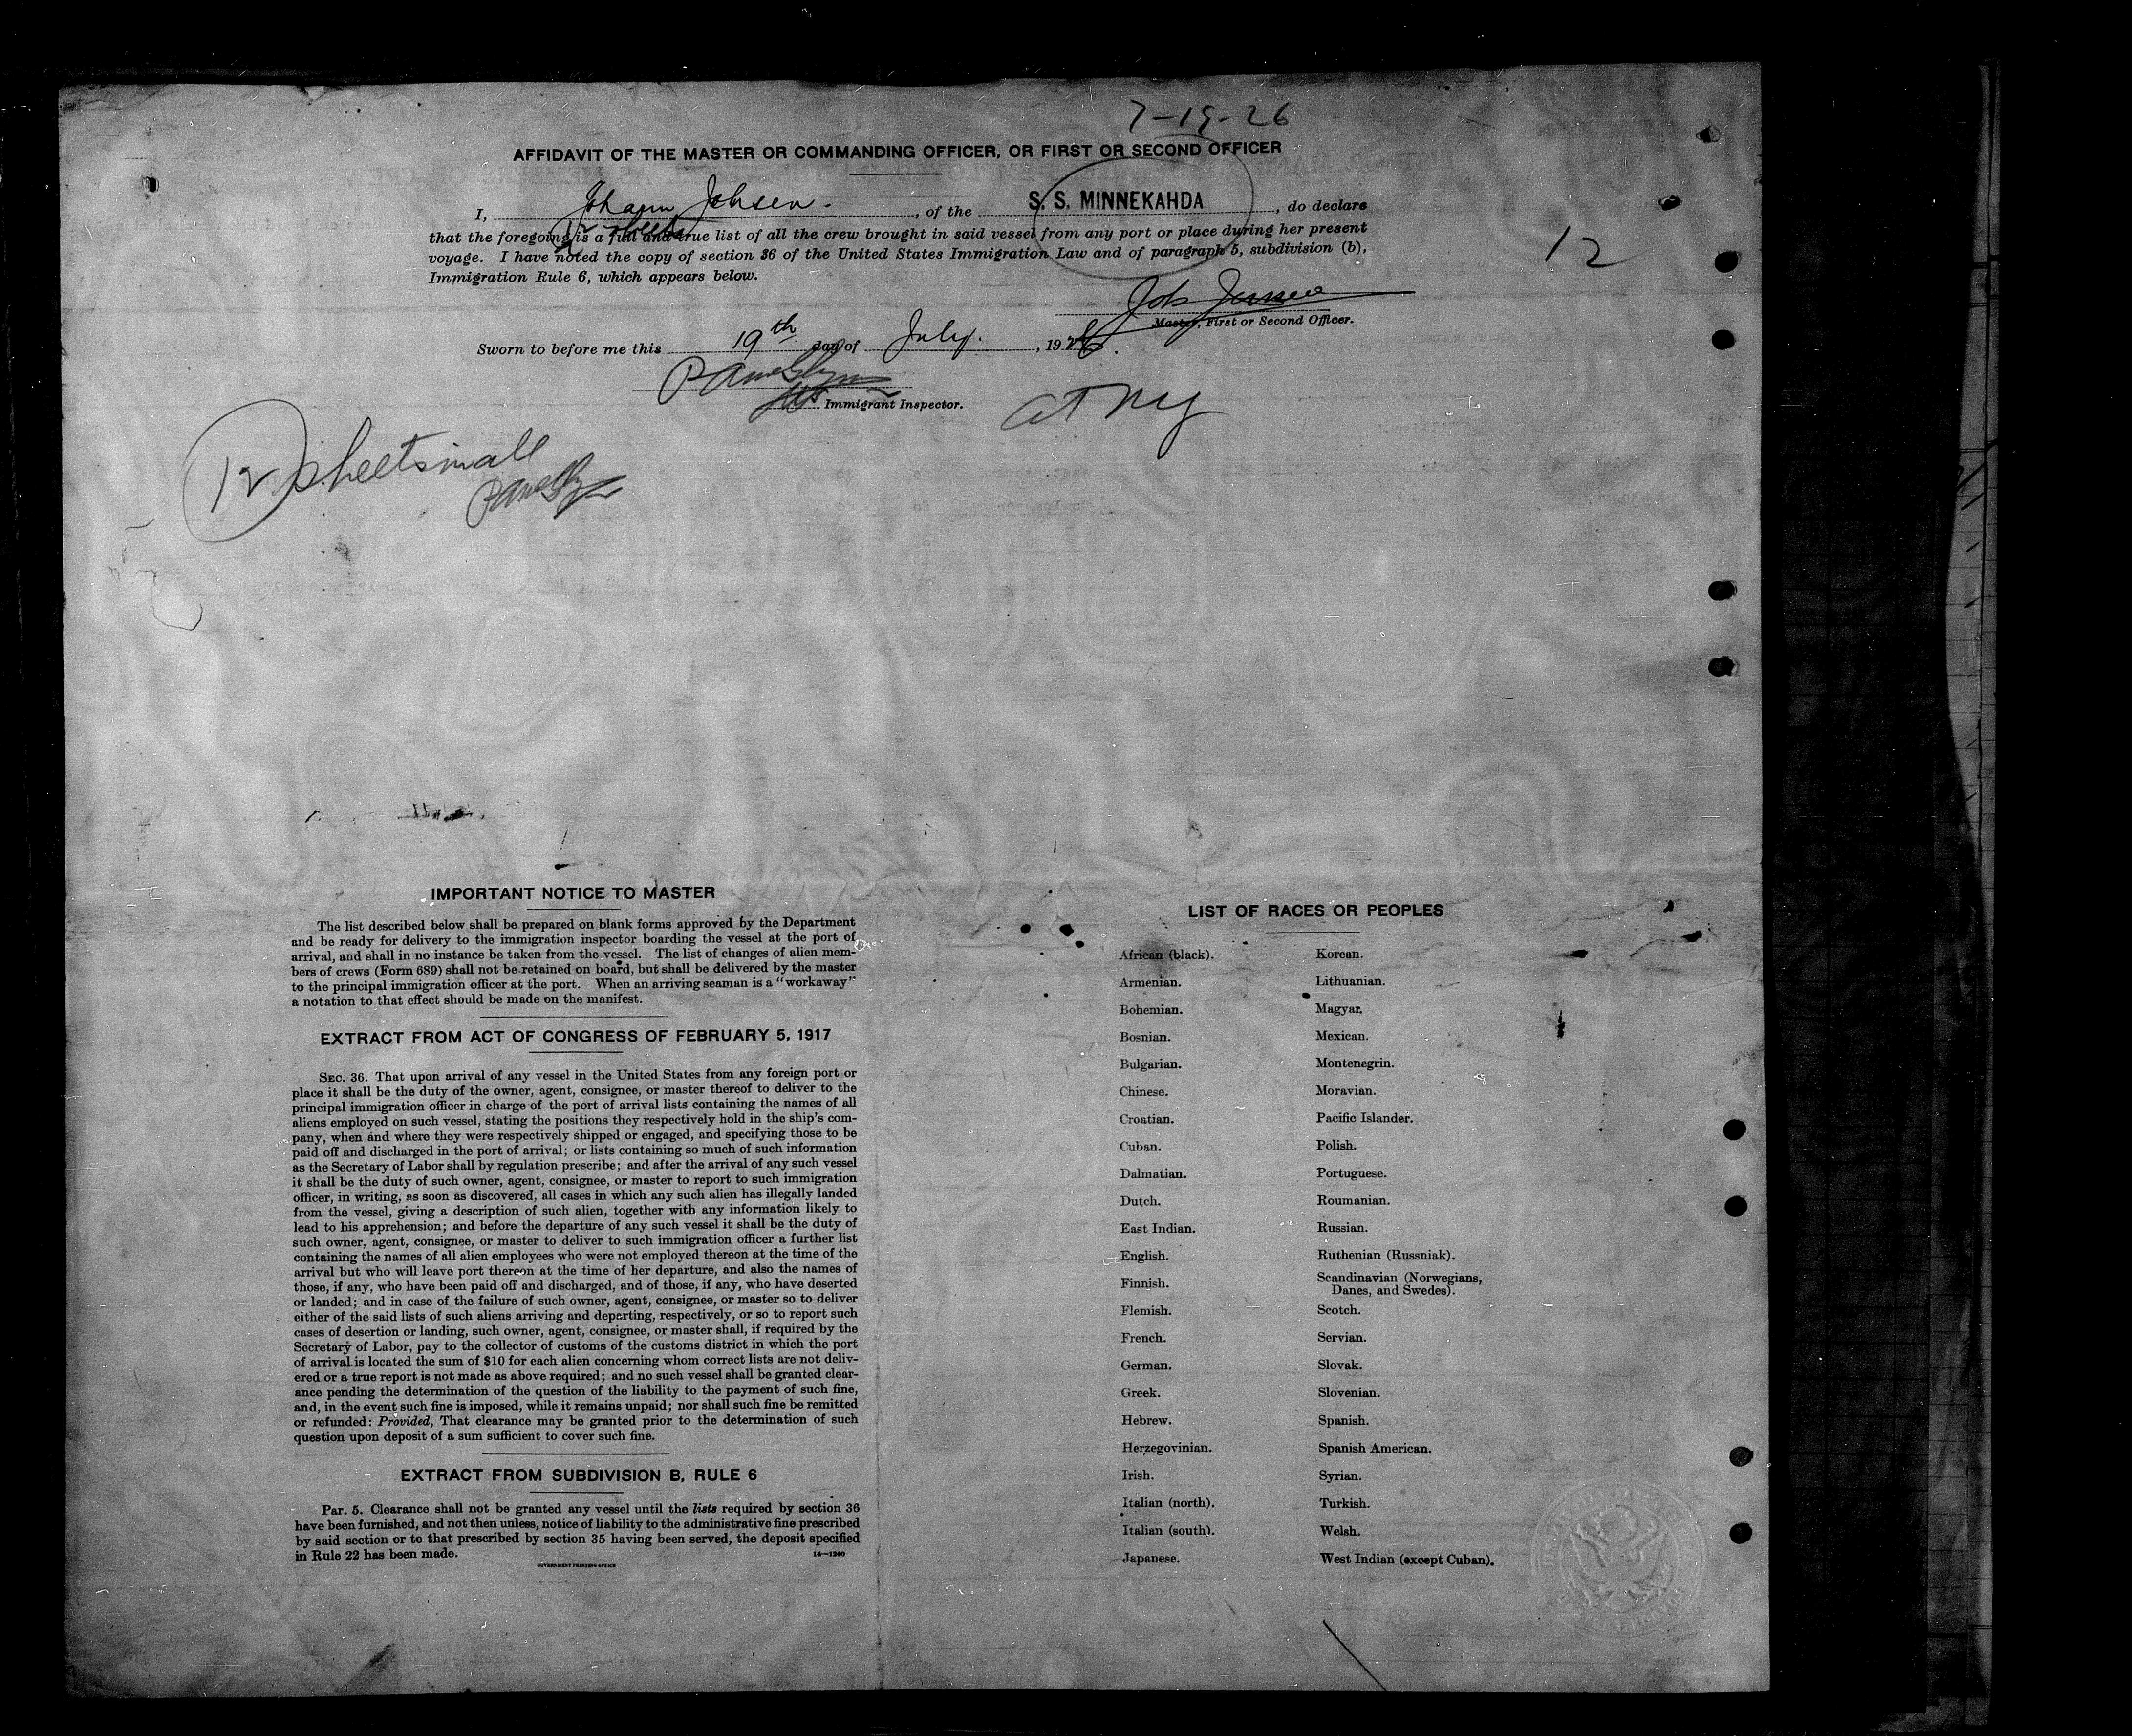 7-19-26
AFFIDAVIT OF THE MASTER OR COMMANDING OFFICER, OR FIRST OR SECOND OFFICER
I, Johann Jensen, of the S. S. MINNEKAHDA, do declare
12 sheets
that the foregoing is a full and true list of all the crew brought in said vessel from any port or place during her present
voyage. I have noted the copy of section 36 of the United States Immigration Law and of paragraph 5, subdivision (b),
Immigration Rule 6, which appears below.
12
Joh Jensen
Master, First or Second Officer.
Sworn to before me this 19th day of July, 1926.
Immigrant Inspector.
at NY
12 sheets in all
IMPORTANT NOTICE TO MASTER
The list described below shall be prepared on blank forms approved by the Department
and be ready for delivery to the immigration inspector boarding the vessel at the port of
arrival, and shall in no instance be taken from the vessel. The list of changes of alien mem-
bers of crews (Form 689) shall not be retained on board, but shall be delivered by the master
to the principal immigration officer at the port. When an arriving seaman is a "workaway"
a notation to that effect should be made on the manifest.
EXTRACT FROM ACT OF CONGRESS OF FEBRUARY 5, 1917
SEC. 36. That upon arrival of any vessel in the United States from any foreign port or
place it shall be the duty of the owner, agent, consignee, or master thereof to deliver to the
principal immigration officer in charge of the port of arrival lists containing the names of all
aliens employed on such vessel, stating the positions they respectively hold in the ship's com-
pany, when and where they were respectively shipped or engaged, and specifying those to be
paid off and discharged in the port of arrival; or lists containing so much of such information
as the Secretary of Labor shall by regulation prescribe; and after the arrival of any such vessel
it shall be the duty of such owner, agent, consignee, or master to report to such immigration
officer, in writing, as soon as discovered, all cases in which any such alien has illegally landed
from the vessel, giving a description of such alien, together with any information likely to
lead to his apprehension; and before the departure of any such vessel it shall be the duty of
such owner, agent, consignee, or master to deliver to such immigration officer a further list
containing the names of all alien employees who were not employed thereon at the time of the
arrival but who will leave port thereon at the time of her departure, and also the names of
those, if any, who have been paid off and discharged, and of those, if any, who have deserted
or landed; and in case of the failure of such owner, agent, consignee, or master so to deliver
either of the said lists of such aliens arriving and departing, respectively, or so to report such
cases of desertion or landing, such owner, agent, consignee, or master shall, if required by the
Secretary of Labor, pay to the collector of customs of the customs district in which the port
of arrival is located the sum of $10 for each alien concerning whom correct lists are not deliv-
ered or a true report is not made as above required; and no such vessel shall be granted clear-
ance pending the determination of the question of the liability to the payment of such fine,
and, in the event such fine is imposed, while it remains unpaid; nor shall such fine be remitted
or refunded: Provided, That clearance may be granted prior to the determination of such
question upon deposit of a sum sufficient to cover such fine.
EXTRACT FROM SUBDIVISION B, RULE 6
Par. 5. Clearance shall not be granted any vessel until the lists required by section 36
have been furnished, and not then unless, notice of liability to the administrative fine prescribed
by said section or to that prescribed by section 35 having been served, the deposit specified
in Rule 22 has been made.
14—1240
GOVERNMENT PRINTING OFFICE
LIST OF RACES OR PEOPLES
African (black).
Armenian.
Bohemian.
Bosnian.
Bulgarian.
Chinese.
Croatian.
Cuban.
Dalmatian.
Dutch.
East Indian.
English.
Finnish.
Flemish.
French.
German.
Greek.
Hebrew.
Herzegovinian.
Irish.
Italian (north).
Italian (south).
Japanese.
Korean.
Lithuanian.
Magyar.
Mexican.
Montenegrin.
Moravian.
Pacific Islander.
Polish.
Portuguese.
Roumanian.
Russian.
Ruthenian (Russniak).
Scandinavian (Norwegians,
Danes, and Swedes).
Scotch.
Servian.
Slovak.
Slovenian.
Spanish.
Spanish American.
Syrian.
Turkish.
Welsh.
West Indian (except Cuban).